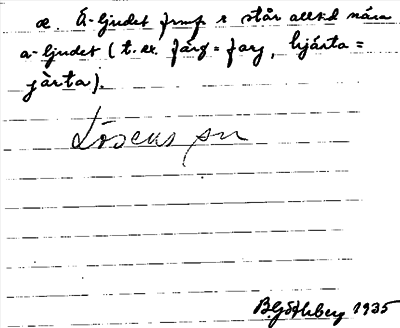 æ. Ä-ljudet framf. r står alltid nära
a-ljudet (t. ex. färg = farg, hjärta =
järta).
Lösens sn
B. Götlberg 1935